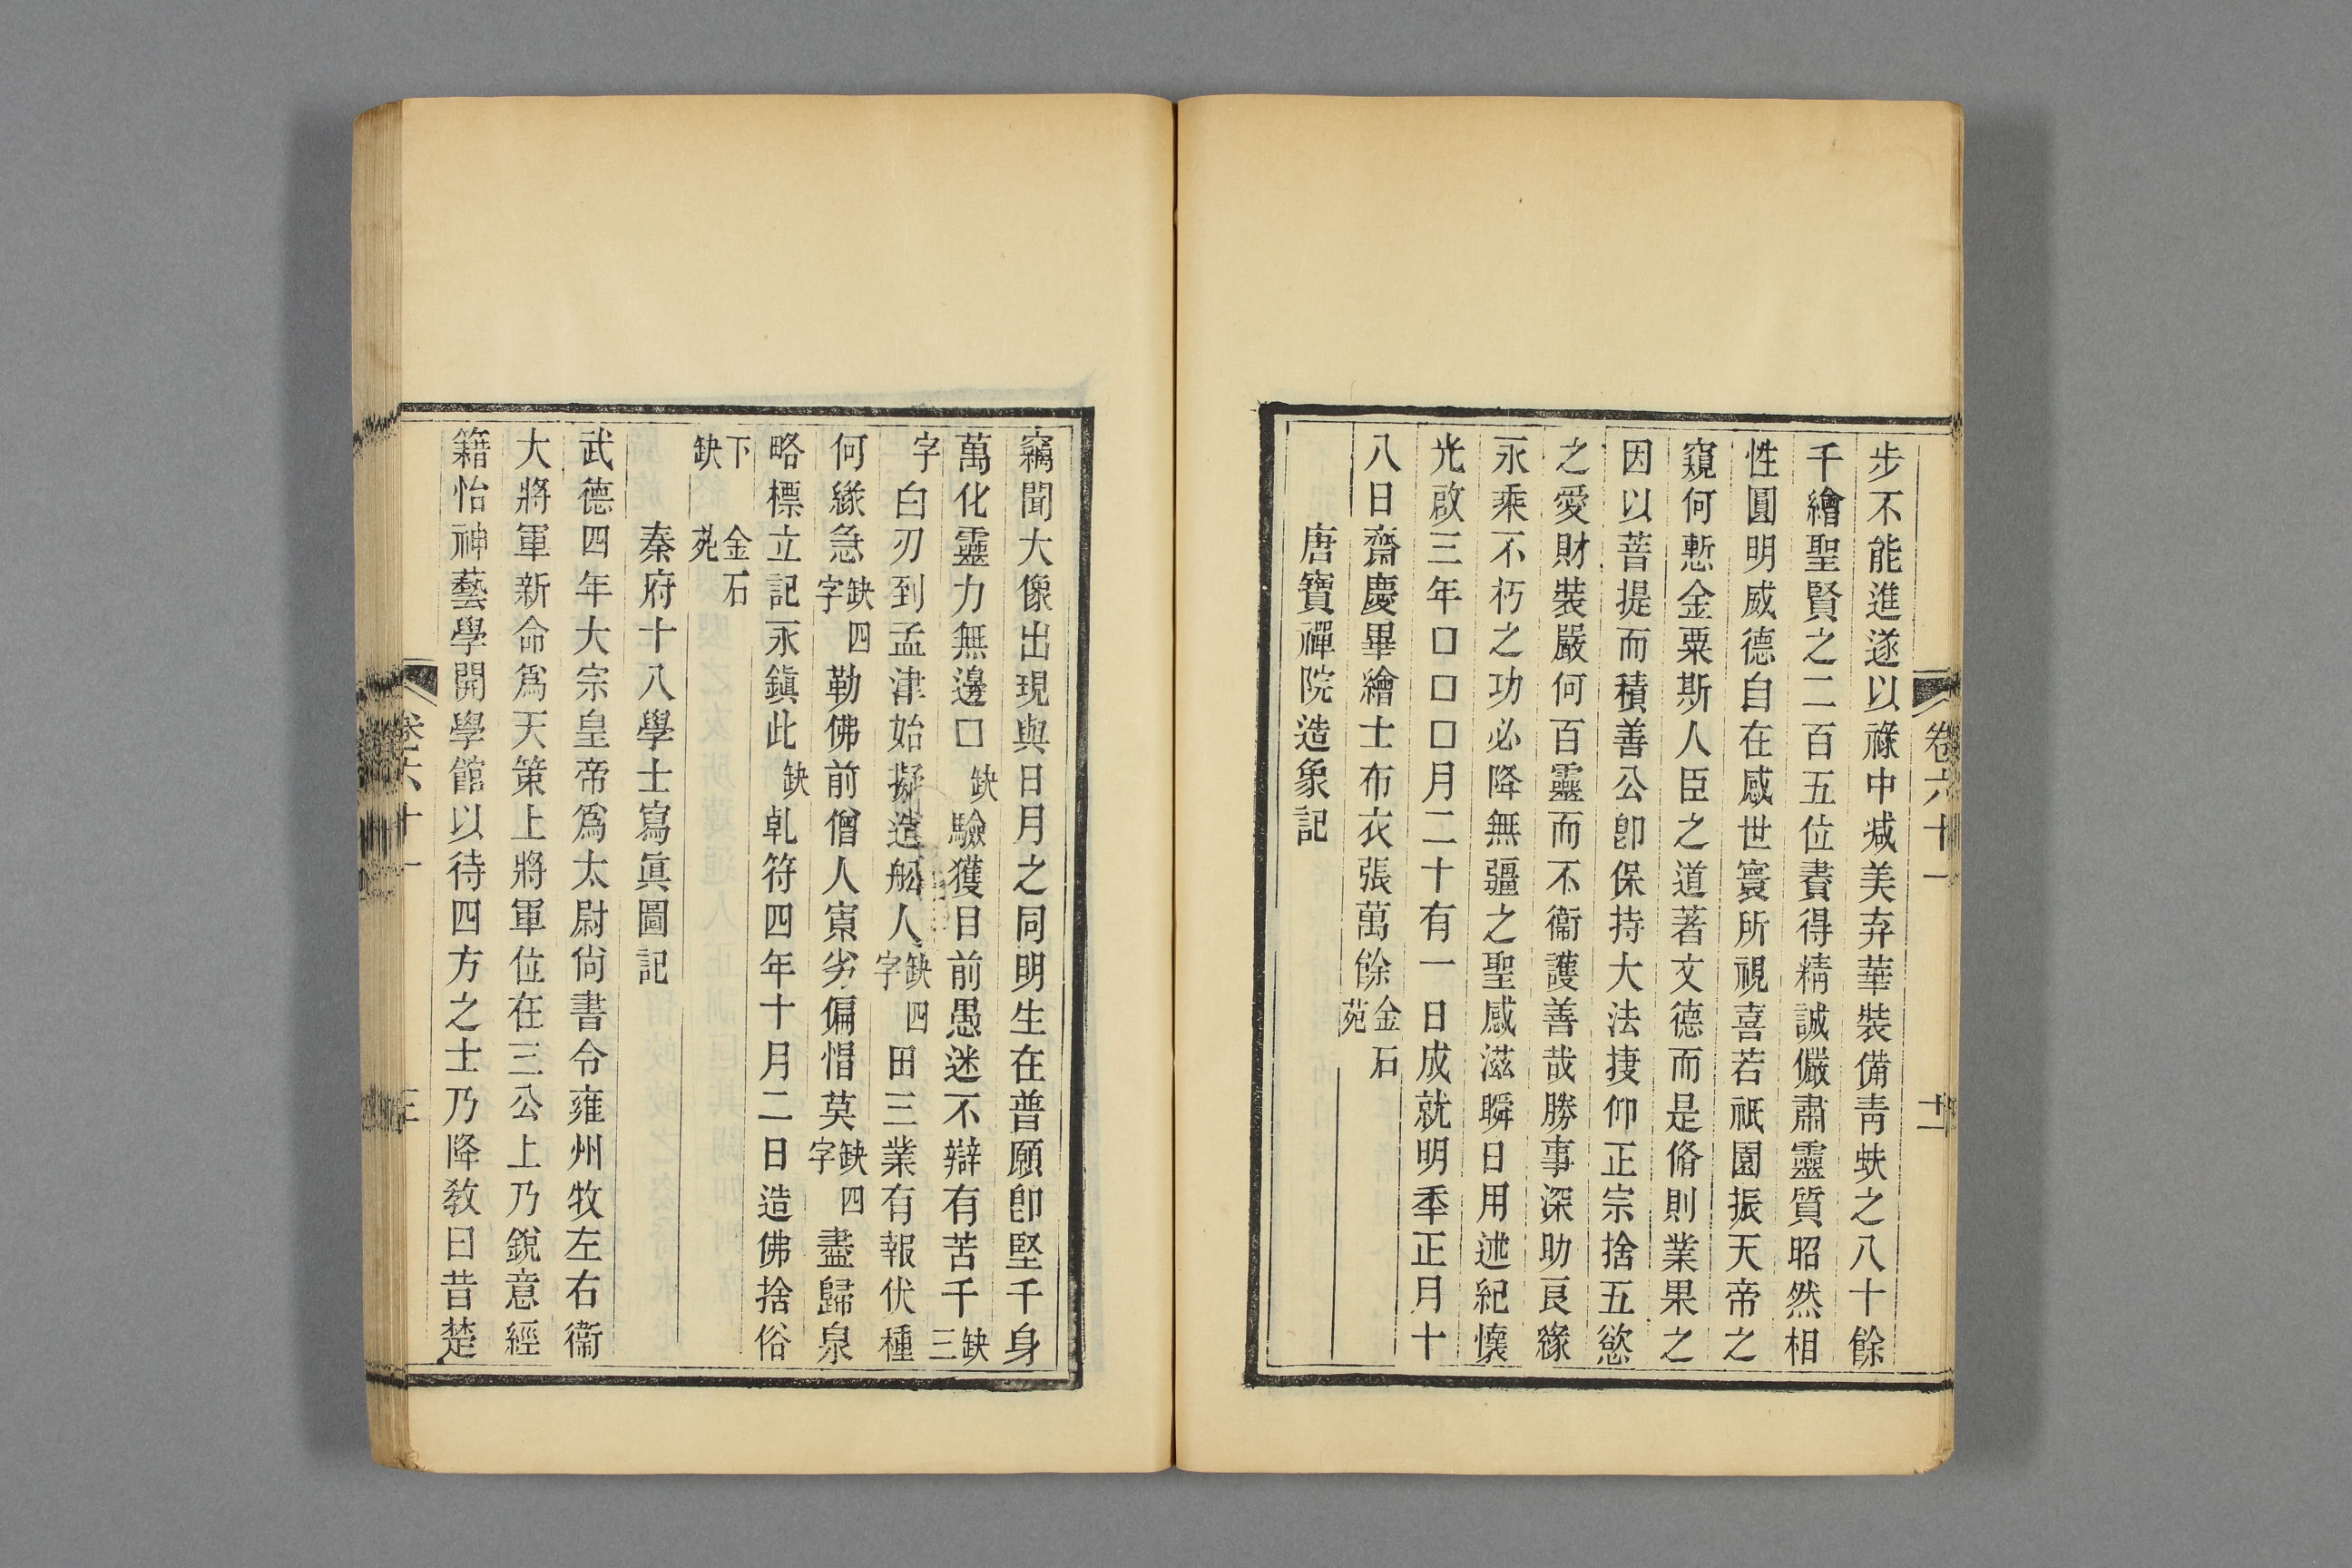 卷六十一
十二
步不能進遂以祿中減美弃華裝備青蚨之八十餘
千繪聖賢之二百五位費得精誠儼肅靈質昭然相
性圓明威德自在感世寰所視喜若祇園振天帝之
窺何慙金粟斯人臣之道著文德而是脩則業果之
因以菩提而積善公卽保持大法捷仰正宗捨五慾
之愛財裝嚴何百靈而不衞護善哉勝事深助良緣
永乘不朽之功必降無疆之聖感滋瞬日用述紀懷
光啟三年口口口月二十有一日成就明秊正月十
八日齋慶畢繪士布衣張萬餘金石苑
唐寶禪院造象記
竊聞大像出現與日月之同明生在普願卽堅千身
萬化靈力無邊口缺驗獲目前愚迷不辯有苦千缺三
字白刃到孟津始擬造舩人缺四字田三業有報伏種
何緣急缺四字勒佛前僧人寡劣偏惜莫缺四字盡歸泉
略標立記永鎮此缺乹符四年十月二日造佛捨俗
下缺 金石苑
秦府十八學士寫眞圖記
武德四年大宗皇帝爲太尉尙書令雍州牧左右衞
大將軍新命爲天策上將軍位在三公上乃銳意經
籍怡神藝學開學館以待四方之士乃降敎曰昔楚
卷六十一